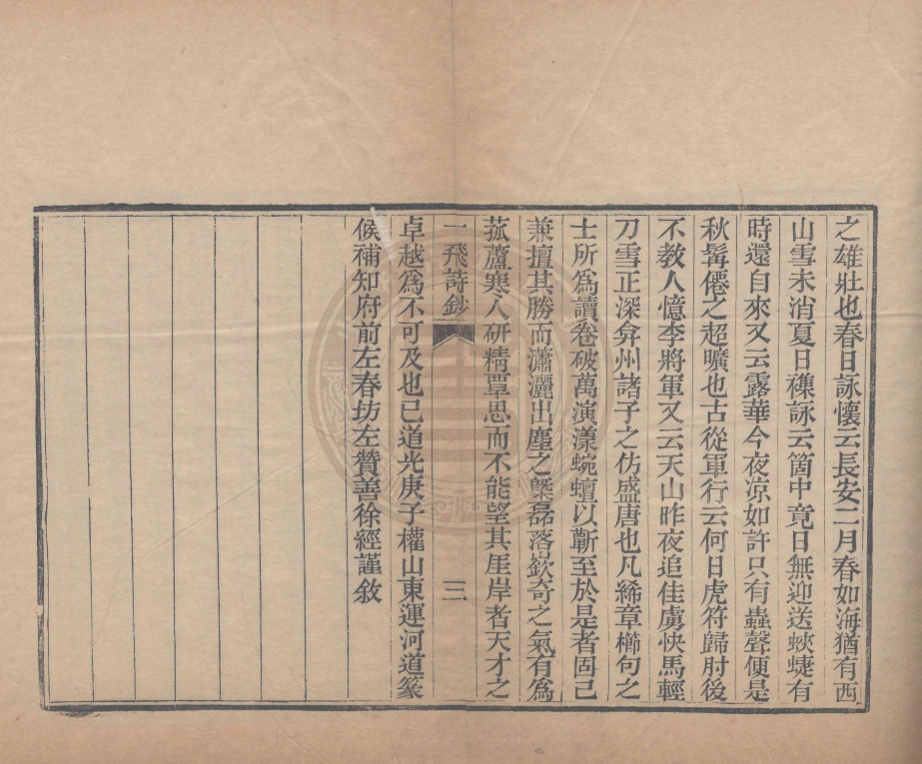 之雄壯也春日詠懷云長安二月春如海猶有西
山雪未消夏日襍詠云箇中竟日無迎送蛺蜨有
時還自來又云露華今夜凉如許只有蟲聲便是
秋髯僊之超曠也古從軍行云何日虎符歸肘後
不教人憶李將軍又云天山昨夜追佳虜快馬輕
刀雪正深弇州諸子之仿盛唐也凡絺章櫛句之
士所爲讀卷破萬演漾蜿蟺以蘄至於是者固已
兼擅其勝而瀟灑出塵之槩磊落嶔奇之氣有爲
菰蘆寒人研精覃思而不能望其厓岸者天才之
一飛詩鈔 三
卓越爲不可及也已道光庚子權山東運河道篆
候補知府前左春坊左贊善徐經謹敘